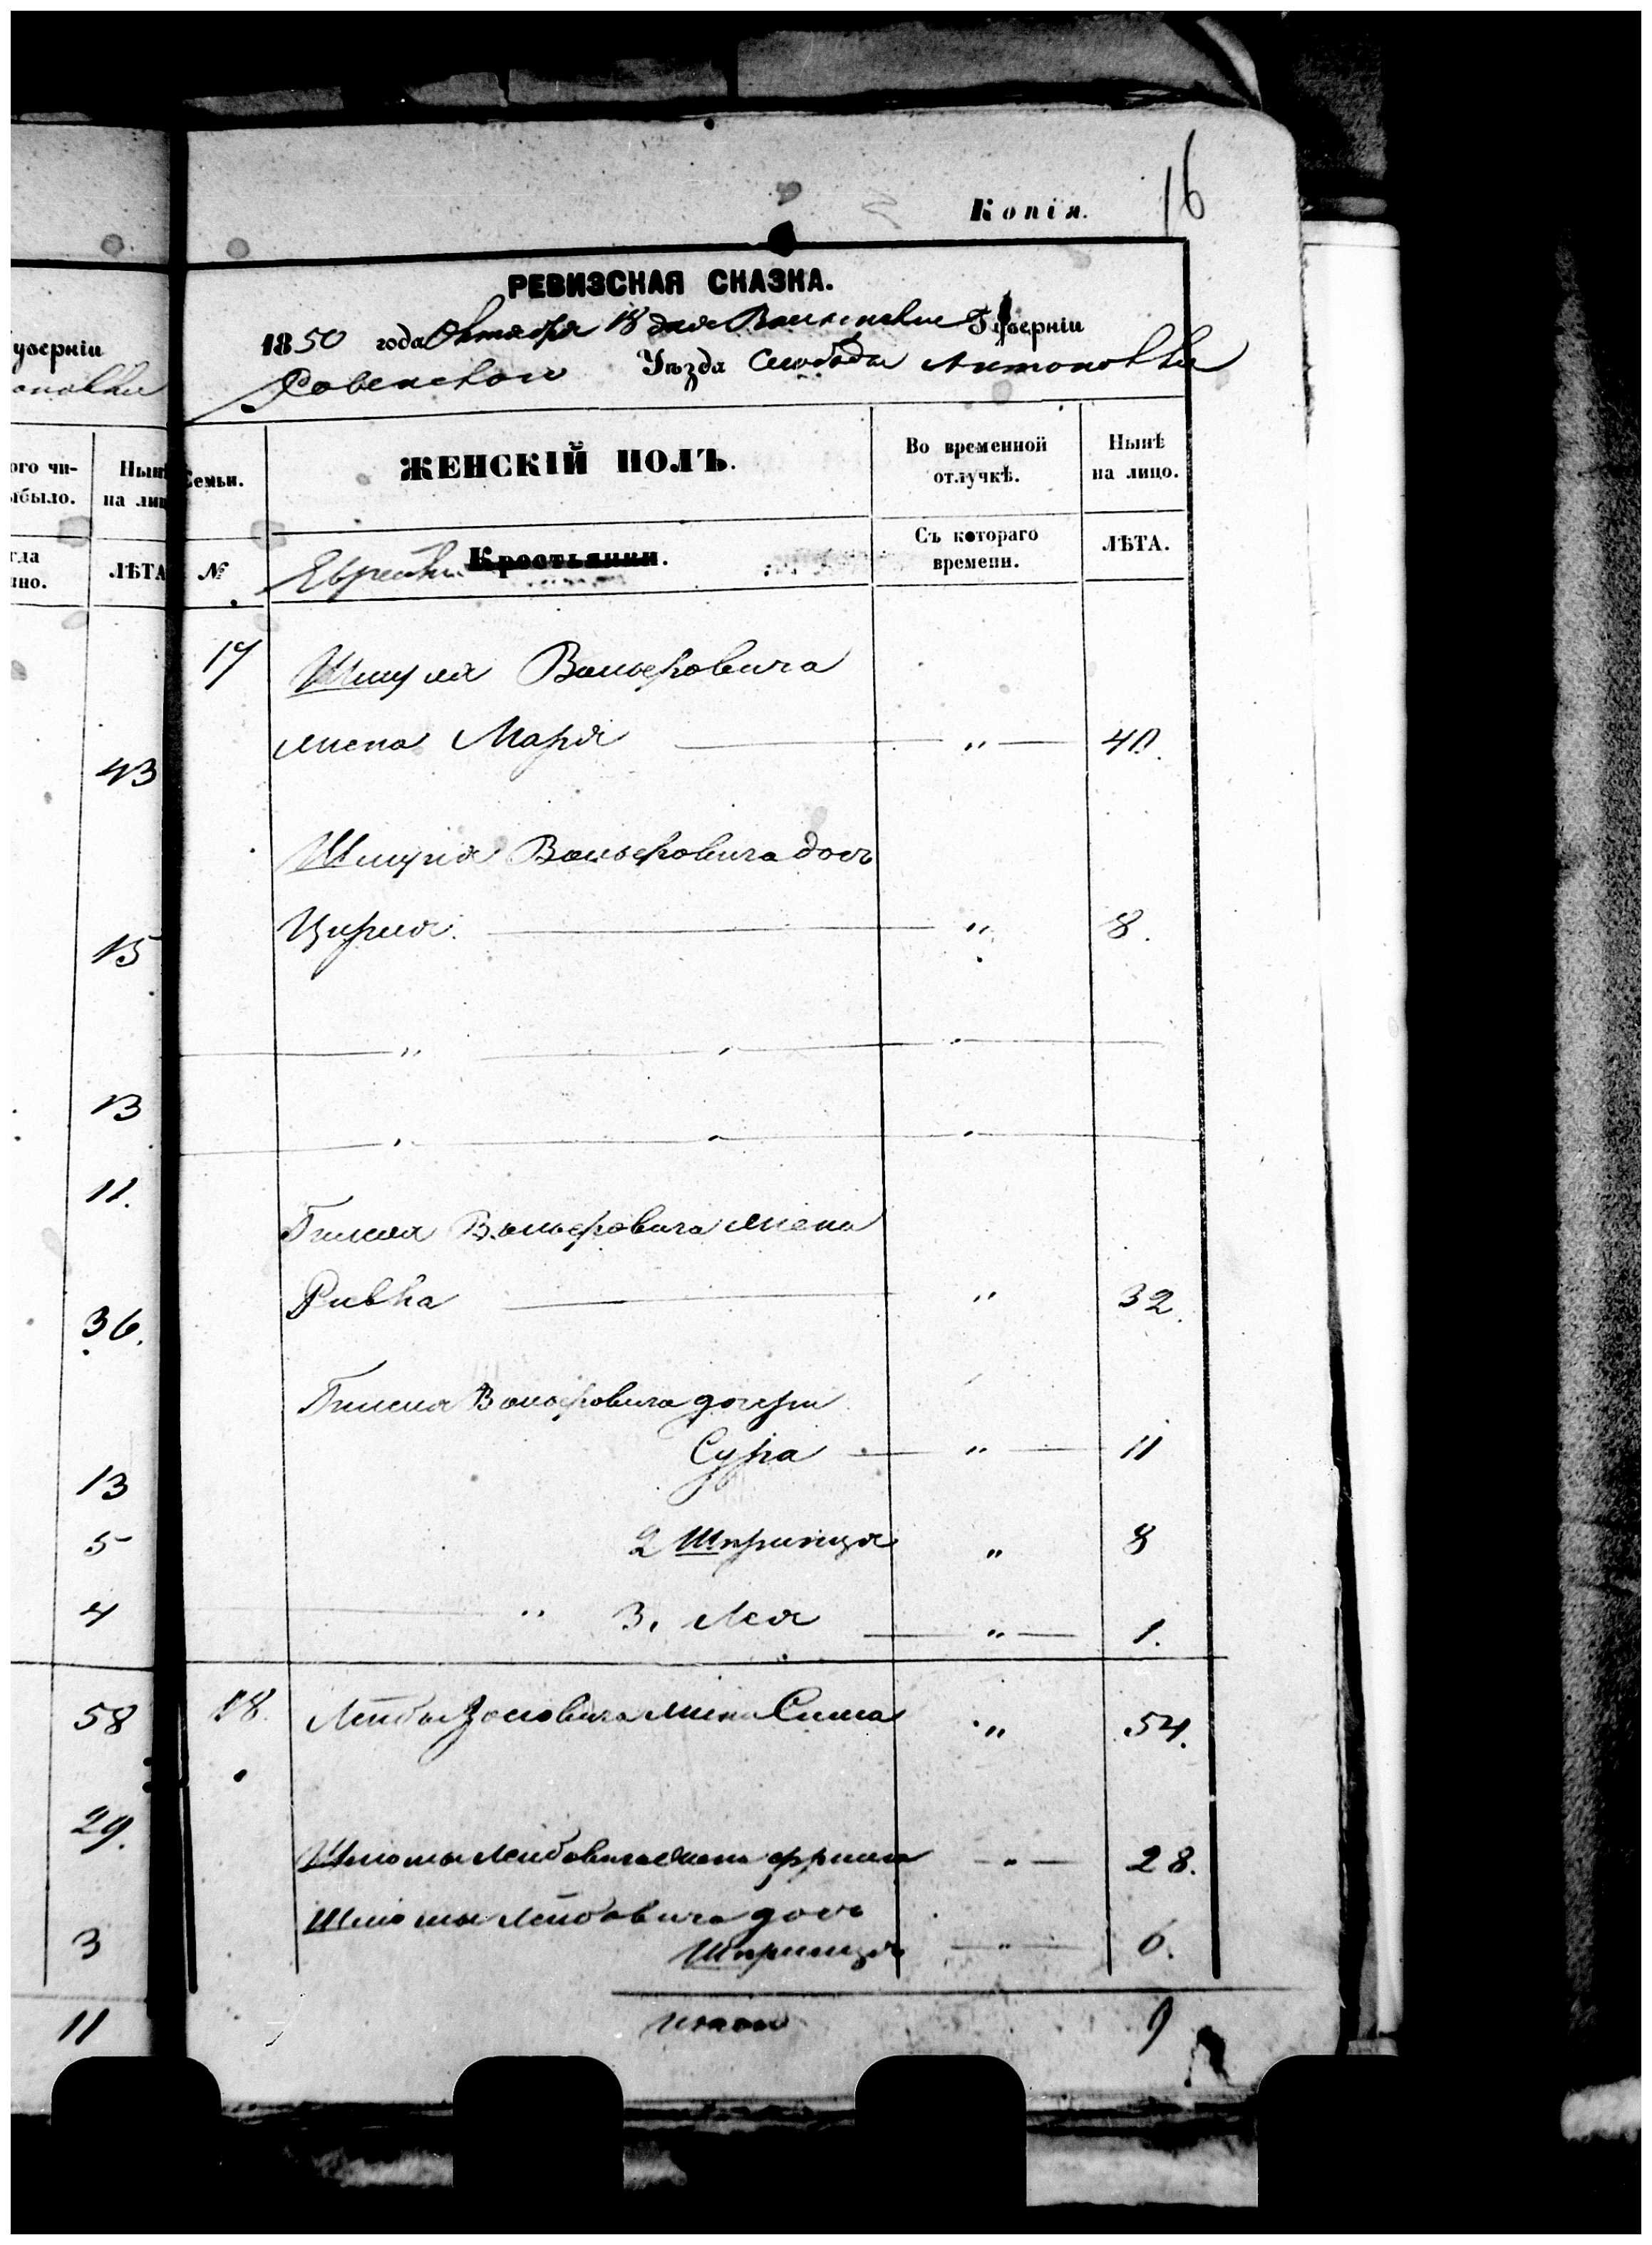 Копія. 16
РЕВИЗСКАЯ СКАЗКА.
1850 года Октября 18 дня Волынской Губерніи
Ровенского Уѣзда Слободы Антоновки
уберніи
оновки
ого чи-
ыбыло.
Нынѣ
на лиц
Семьи.
ЖЕНСКІЙ ПОЛЪ.
Во временной
отлучкѣ.
Нынѣ
на лицо.
гда
но.
ЛѢТА
№
Еврейки Крестьянки.
Съ котораго
времени.
ЛѢТА.
17 Шмуля Вольфовича
жена Маря " 40.
43
Шмуля Вольфовича дочь
Цирля. " 8.
15
"
13
11.
Вольфовича жена
Ривка " 32.
36.
Вольфовича дочери
Сура " 11
13
2 Шпринца " 8
5
" 3. Лея " 1.
4
58 18. Лейбы жена Сима " 54.
29.
Шломы Лейбовича жена Фрима " 28.
Шломы Лейбовича дочь
3 Шпринца " 6.
11 Итого 9